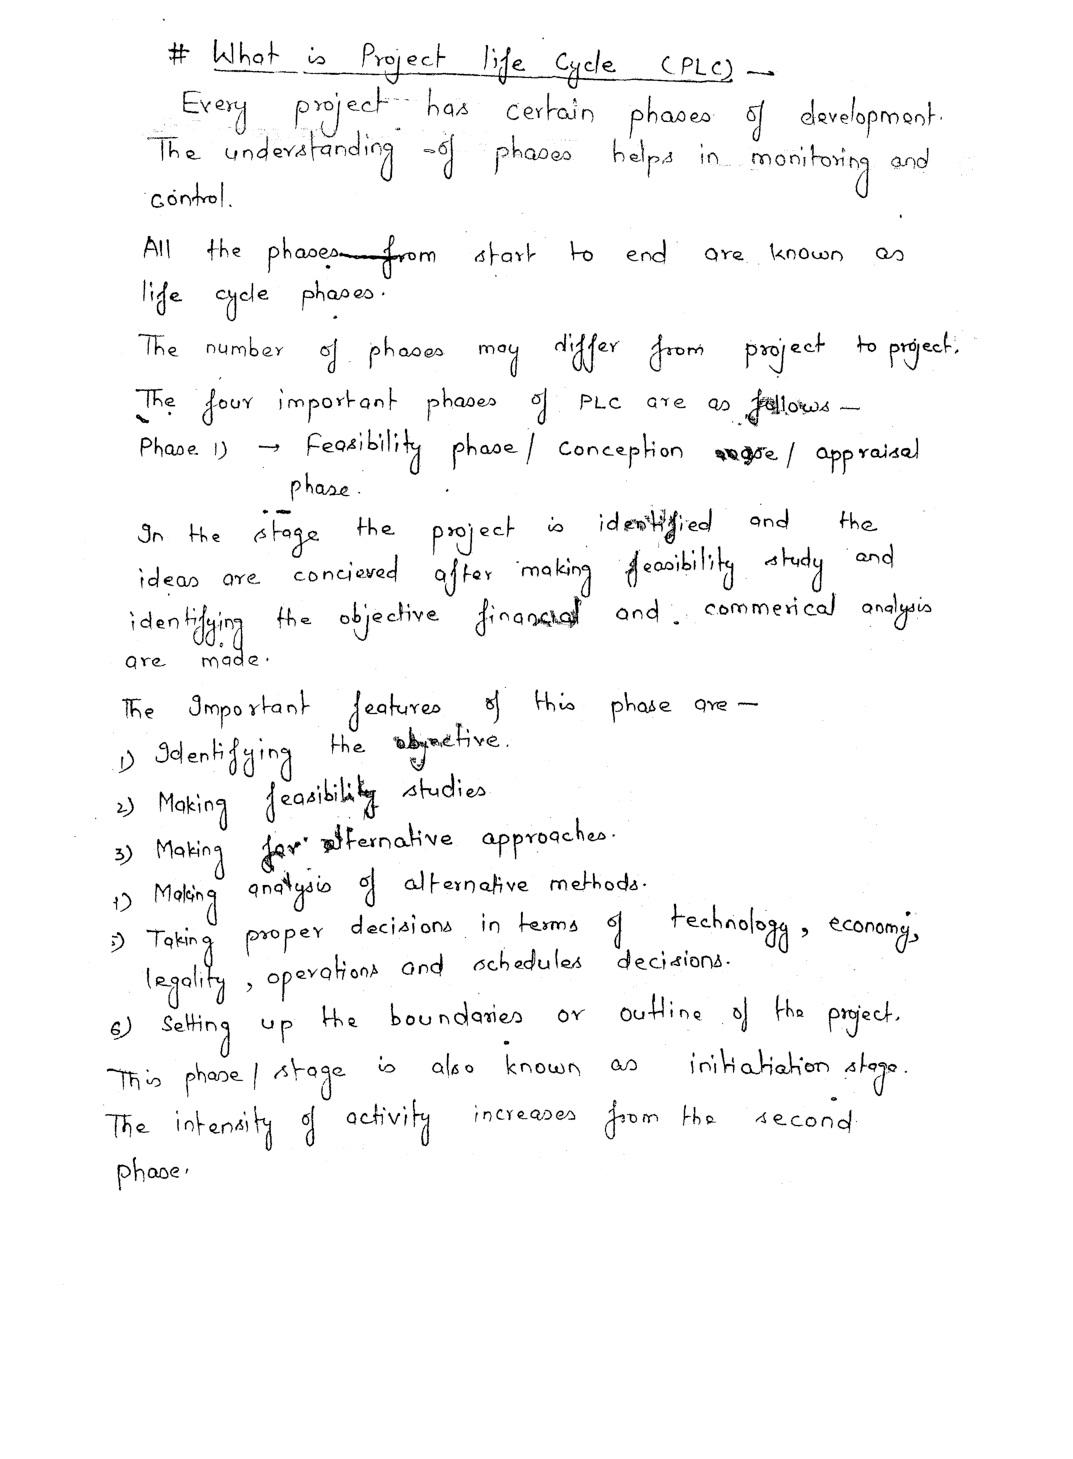 # What is Project life Cycle (PLC) —
Every project has certain phases of development.
The understanding of phases helps in monitoring and
control.
All the phases from start to end are known as
life cycle phases.
The number of phases may differ from project to project.
The four important phases of PLC are as follows —
Phase 1) → Feasibility phase / Conception / appraisal
phase.
In the stage the project is identified and the
ideas are concieved after making feasibility study and
identifying the objective financial and commerical analysis
are made.
The Important features of this phase are —
1) Identifying the objective.
2) Making feasibility studies
3) Making for alternative approaches.
4) Making analysis of alternative methods.
5) Taking proper decisions in terms of technology, economy,
legality, operations and schedules decisions.
6) Setting up the boundaries or outline of the project.
This phase / stage is also known as initiatiation stage.
The intensity of activity increases from the second
phase.